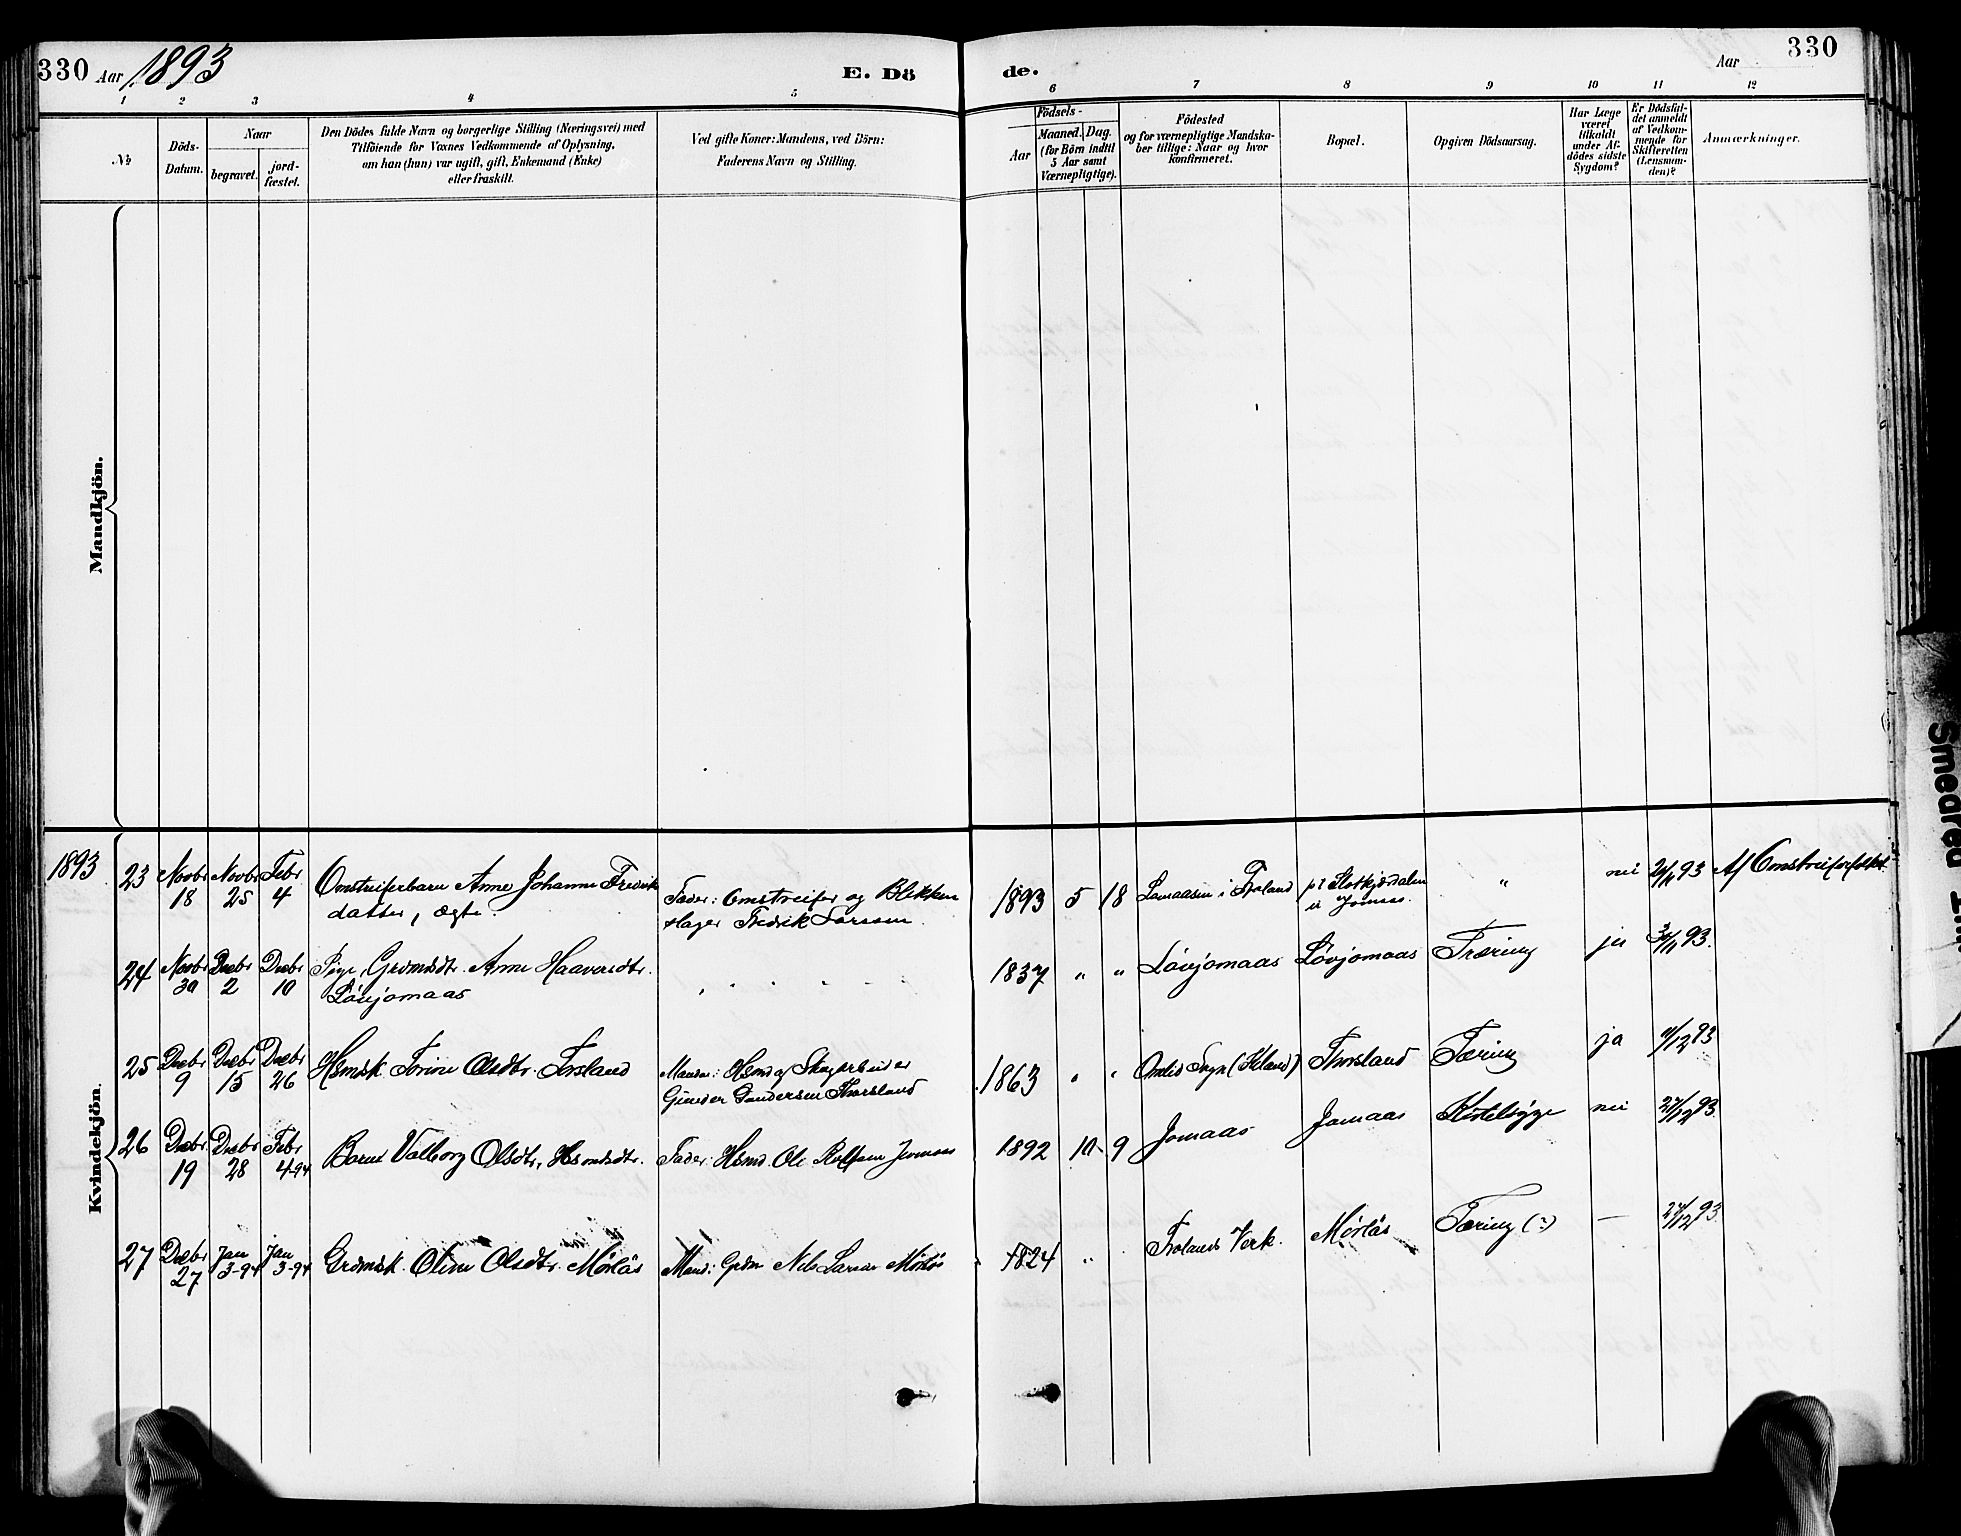 330 Aar 1893
E. Dö
de.
Aar 330
1 2 3 4 5 6 7 8 9 10 11 12
№
Döds-
Datum.
Naar
begravet.
jord-
fæstet.
Den Dödes fulde Navn og borgerlige Stilling (Næringsvei) med
Tilföiende for Voxnes Vedkommende af Oplysning,
om han (hun) var ugift, gift, Enkemand (Enke)
eller fraskilt.
Ved gifte Koner: Mandens, ved Börn:
Faderens Navn og Stilling.
Födsels-
Aar
Maaned. Dag.
(for Börn indtil
5 Aar samt
Værnepligtige).
Födested
og for værnepligtige Mandska-
ber tillige: Naar og hvor
konfirmeret.
Bopæl.
Opgiven Dödsaarsag.
Har Læge
været
tilkaldt
under Af-
dödes sidste
Sygdom?
Er Dödsfal-
det anmeldt
af Vedkom-
mende for
Skifteretten
(Lensman-
den)?
Anmærkninger.
Mandkjön.
Kvindekjön.
1893
23 Novbr 18 Novbr 25 Febr 4 Omstreiferbarn Anne Johanne Fredrik
datter, ægte. Fader: Omstreifer og Blikken
slager Fredrik Larssen 1893 5 18 Lamaasen i Froland "
nei 24/11 93 Af Omstreiferfolket
24 Novbr 30 Decbr 2 Decbr 10 Pige, Grdmdsdtr. Anne Haavorsdtr.
Løvjomaas 1837 " " Løvjomaas Løvjomaas Tæring ja 30/11 93.
25 Decbr 9 Decbr 15 Decbr 26 Hsmdsk. Torine Olsdtr. Torsland Mand: Hsmd og Skogarbeider
Gunder Gundersen Thorsland 1863 " " Omlid Sogn Thorsland Tæring ja 9/12 93
26 Decbr 19 Decbr 28 Febr 4-94 Barnet Valborg Olsdtr, Hsmdsdtr. Fader: Hsmd. Ole Rolfsen Jomaas 1892 10 9 Jomaas Jomaas nei 27/12 93
27 Decbr 27 Jan 3-94 Jan 3-94 Grdmdsk. Oline Olsdtr. Mørlås Mand: Grdm Nils Larsen Mørlås 1824 " Frolands Verk. Mørlås Tæring (?) — 27/12 93
Smedrea